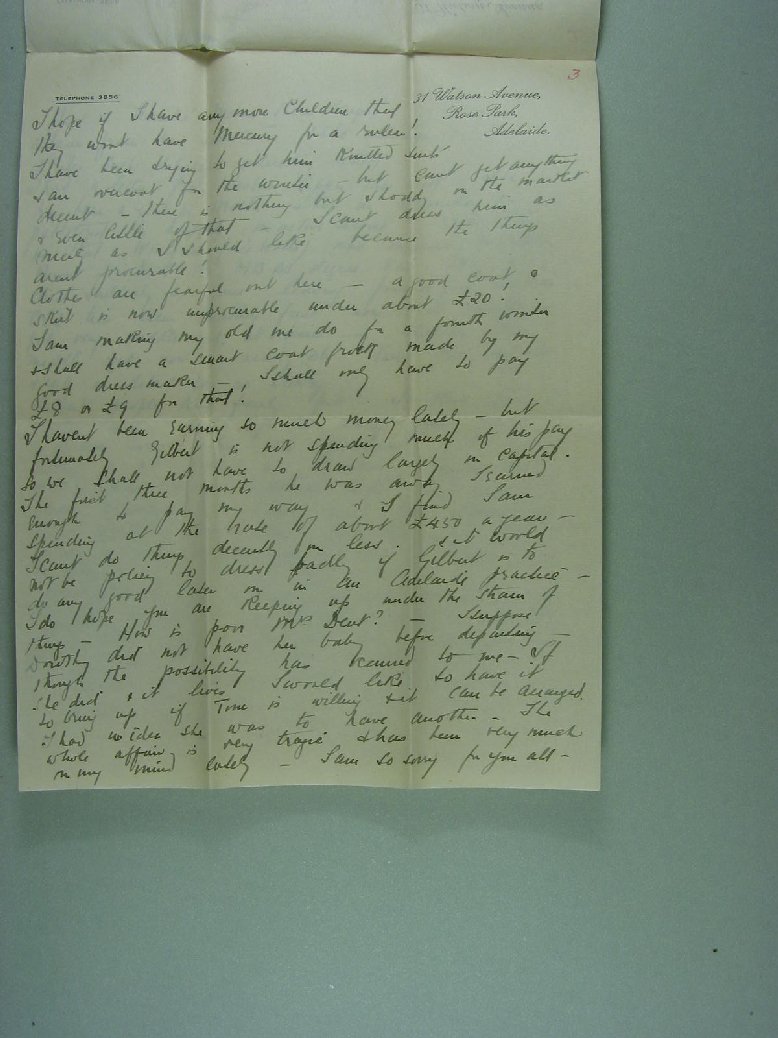 3
TELEPHONE 3856
31 Watson Avenue,
Rose Park,
Adelaide.
I hope if I have any more children that
they wont have Mercury for a ruler!
I have been trying to get him knitted suits
& an overcoat for the winter - but cant get anything
decent - there is nothing but shoddy on the market
& even little of that - I cant dress him as
nicely as I should like because the things
arent procurable!
Clothes are fearful out here - a good coat &
skirt is now unprocurable under about £20!
I am making my old one do for a fourth winter
& shall have a smart coat frock made by my
good dressmaker - I shall only have to pay
£8 or £9 for that!
I havent been earning so much money lately - but
fortunately Gilbert is not spending much of his pay
so we shall not have to draw largely on capital.
The first three months he was away I earned
enough to pay my way & I find I am
spending at the rate of about £450 a year -
I cant do things decently on less. & it would
not be policy to dress badly if Gilbert is to
do any good later on in an Adelaide practice -
I do hope you are keeping up under the strain of
things - How is poor Mrs Dent? - I suppose
Dorothy did not have her baby before departing -
though the possibility has occurred to me - If
she did & it lives I would like to have it
to bring up if Tome is willing & it can be arranged.
I had no idea she was to have another - The
whole affair is very tragic & has been very much
on my mind lately - I am so sorry for you all -